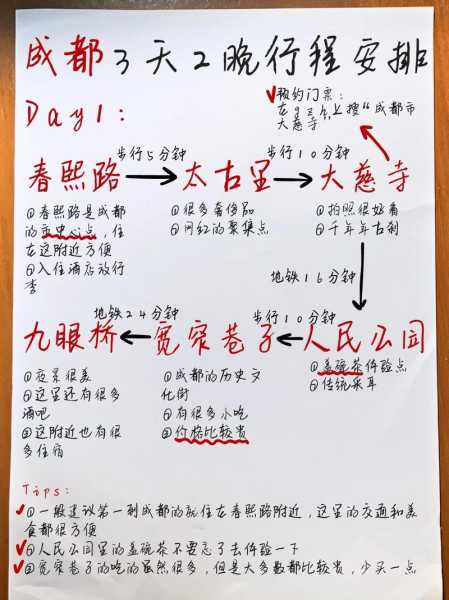 成都3天2晚行程安排
Day1:
预约门票:
大慈寺
步行5分钟
步行10分钟
春熙路
太古里
大慈寺
①春熙路是成都
的中心点,住
在这附近方便
②入住酒店放行
李
①很多奢侈品
②网红的聚集点
①拍照很好看
②千年古刹
地铁16分钟
地铁24分钟
步行10分钟
九眼桥
宽窄巷子
人民公园
①夜景很美
②这里还有很多
酒吧
③这附近也有很
多住宿
①成都的历史文
化街
②有很多小吃
③价格比较贵
①盖碗茶体验点
②传统采耳
Tips:
①一般建议第一到成都的就住在春熙路附近,这里的交通和美
食都很方便
②人民公园里的盖碗茶不要忘了去体验一下
③宽窄巷子的吃的虽然很多,但是大多数都比较贵,少买一点